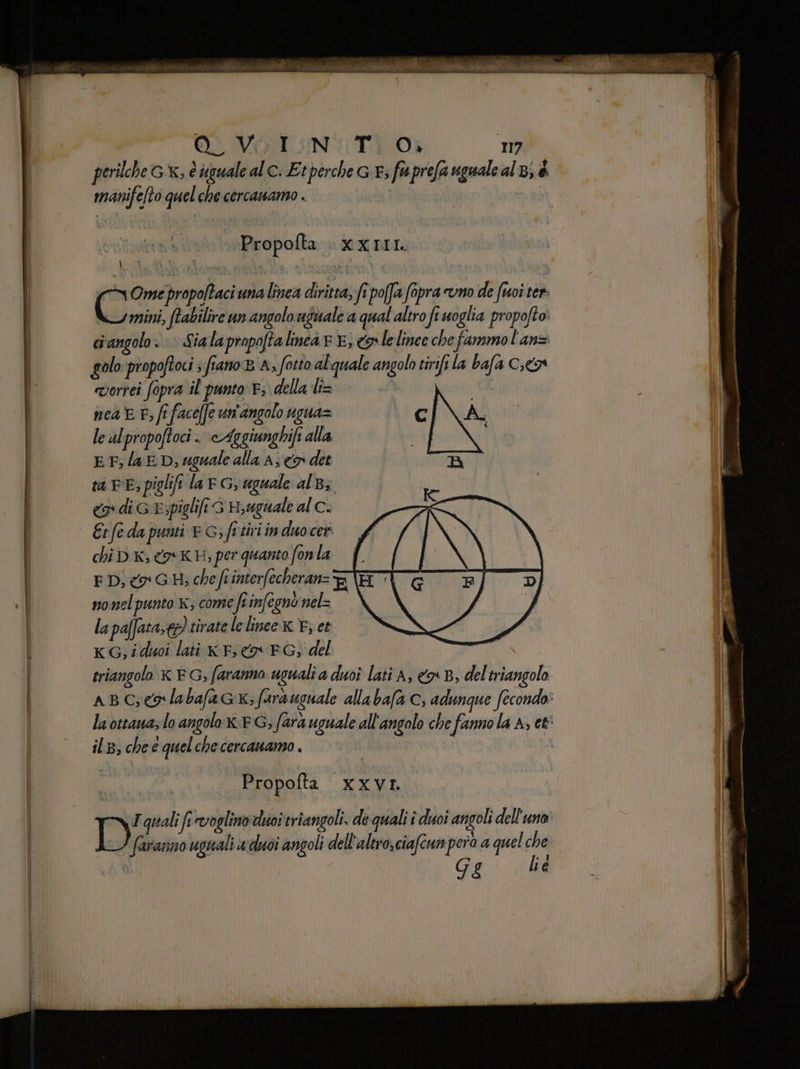 QVINTO. 117
perilche G K, è uguale al C. Et perche G F, fu presa uguale al B, è
manifesto quel che cercauamo.
Proposta XXIII.
COme propostaci una linea diritta, si possa sopra vno de suoi ter-
mini, stabilire un angolo uguale a qual altro si uoglia proposto
ci angolo. Sia la proposta linea F E, & le linee che fammo l'an=
golo propostoci, siano B A, sotto al quale angolo tirisi la basa C, &
vorrei sopra il punto F, della li=
nea E F, si facesse un'angolo ugua=
le al propostoci. Aggiunghisi alla
E F, la E D, uguale alla A; & det
ta F E, piglisi la F G, uguale al B;
& di G E, piglisi G H, uguale al C.
Et se da punti F G, si tiri in duo cer
chi D K, & K H, per quanto son la
F D, & G H, che si intersecheran=
no nel punto K, come si insegnò nel=
la passata, & tirate le linee K F, et
K G, i duoi lati K F, & F G, del
triangolo K F G, saranno uguali a duoi lati A, & B, del triangolo
A B C, & la basa G K, sarà uguale alla basa C, adunque secondo
la ottaua, lo angolo K F G, sarà uguale all'angolo che fanno la A, et
il B, che è quel che cercauamo.
C A.
B
K
E H G F D
Proposta XXVI.
DI quali si voglino duoi triangoli, de quali i duoi angoli dell'uno
saranno uguali a duoi angoli dell'altro, ciascun però a quel che
Gg lie